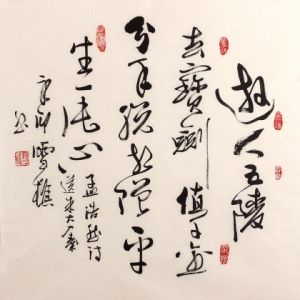 遊人五陵
去寶劍值千金
分手脱相贈平
生一片心
孟浩然詩
送朱大入秦
辛卯雪樵